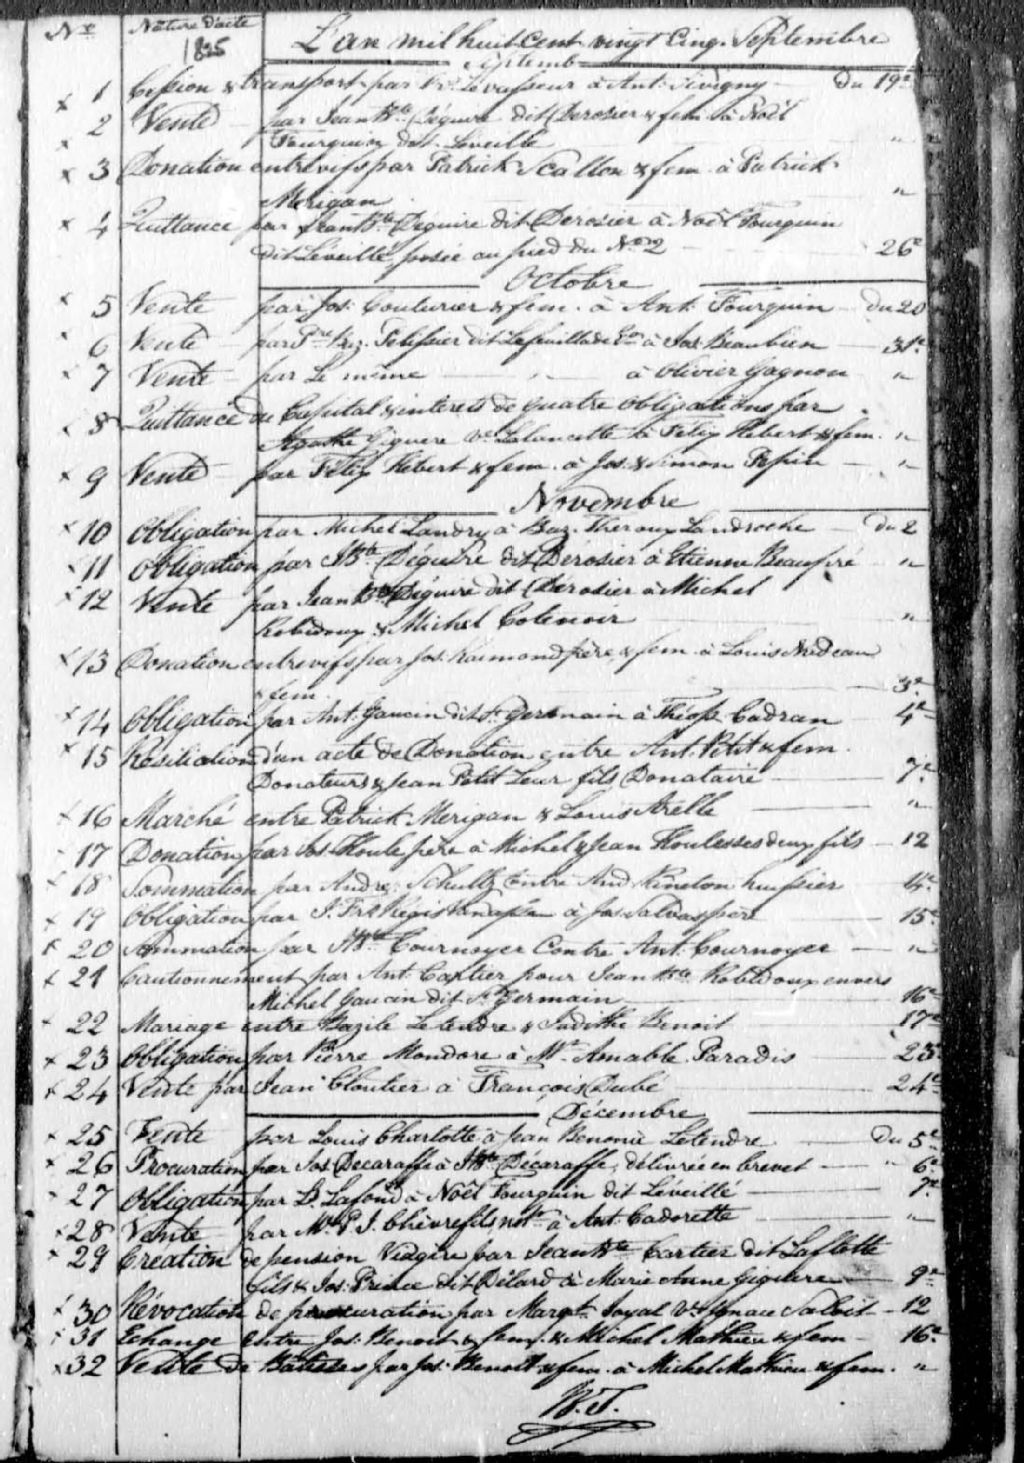 No. Nature d'acte L'an mil huit cent vingt Cinq. Septembre
1825
Septemb
1 Cession & transport par Ve. Levasseur à Ant. Sévigny Du 19e
2 Vente par Jean Bte. Déguire dit Derosier & fem. à Noël
Fourquin dit Léveillé "
3 Donation entrevifs par Patrick Scallon & fem. à Patrick
Merigan "
4 Quittance par Jean Bte. Déguire dit Derosier à Noël Fourquin
dit Léveillé, posée au pied du No. 2 26e
Octobre
5 Vente par Jos. Couturier & fem. à Ant. Fourquin Du 20
6 Vente par Pelissier dit Lafeuillade à Jos. Beaubien 31e
7 Vente par Le même " à Olivier Gagnon "
8 Quittance de Capital & interets de quatre obligations par
Agathe Giguere Ve. Lalancette à Félix Hébert & fem. "
9 Vente par Félix Hébert & fem. à Jos. & Simon Pepin "
Novembre
10 Obligation par Michel Landry à Baz. Theroux Landroche Du 2
11 Obligation par J Bte. Déguire dit Dérosier à Etienne Beaupré "
12 Vente par Jean Bte. Déguire dit Dérosier à Michel
Robidoux & Michel Cotenoir "
13 Donation entrevifs par Jos. Raimond père & fem. à Louis Nadeau
& fem. 3e
14 Obligation par Ant. Gaucin dit St. Germain à Théop. Cadran 4e
15 Résiliation d'un acte de Donation entre Ant. Petit & fem.
Donateurs & Jean Petit Leur fils Donataire 7e
16 Marché entre Patrick Merigan & Louis Arelle "
17 Donation par Jos. Houle père à Michel & Jean Houle ses deux fils 12
18 Sommation par André Schultz Contre And. huissier 14e
19 Obligation par J. Frs. Régis à Jos. Salvas père 15e
20 Sommation par J Bte. Cournoyer Contre Ant. Cournoyer "
21 Cautionnement par Ant. Cartier pour Jean Bte. Robidoux envers
Michel Gaucin dit St. Germain 16e
22 Mariage entre Bazile Letendre & Judithe Benoit 17e
23 Obligation par Pierre Mondore à Mr. Amable Paradis 23e
24 Vente par Jean Cloutier à François Dubé 24e
Décembre
25 Vente par Louis Charlotte à Jean Benonie Letendre Du 5e
26 Procuration par Jos. Decaraffe à J Bte. Décaraffe, délivrée en brevet " 6e
27 Obligation par Ls. Lafond à Noël Fourquin dit Léveillé 7e
28 Vente par Mr. P. J. Chèvrefils not. à Ant. Cadorette "
29 Création de pension Viagère par Jean Bte. Cartier dit Laflotte
fils & Jos. Prince dit Délard à Marie Anne Giguere 9e
30 Révocation de procuration par Margt. Joyal Ve. Ignace Salvit 12
31 Echange entre Jos. Benoit & fem. & Michel Mathieu & fem 16e
32 Vente De Batisses par Jos. Benoit & fem. à Michel Mathieu & fem. "
W. J.